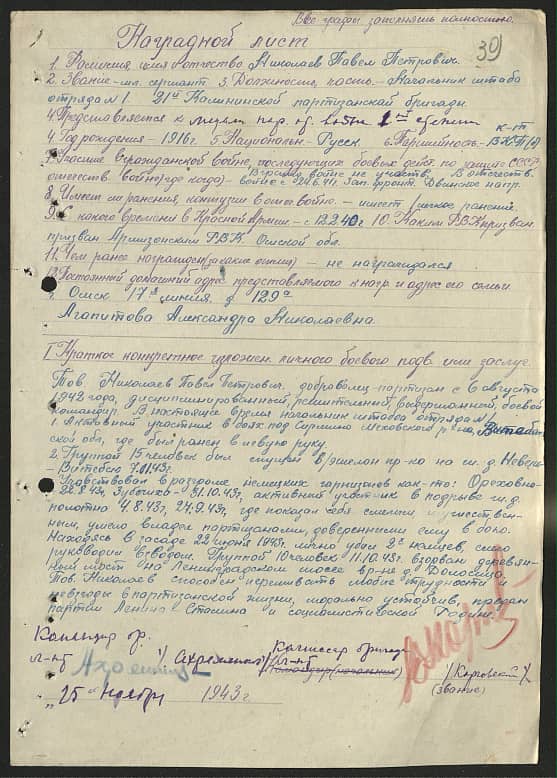 Все графы заполнять полностью.
39
Наградной лист
1. Фамилия имя и отчество Николаев Павел Петрович.
2. Звание – мл. сержант 3. Должность, часть. – Начальник штаба
отряда №1. 21й Калининской партизанской бригады.
4. Представляется к медали пар. от. войны 1ой степени
4 Год рождения – 1916г. 5. Национальн. – Русск 6. Партийность – к-т ВКП(б)
7. участие в гражданской войне, последующих боевых дейс по защите СССР
отечеств. войне (где когда) – В гражд войне не участв. В отечеств.
войне с 24.6.41г. Зап. фронт. Двинское напр.
8. Имеет ли ранения, контузии в отеч. войне. – имеет 1 легкое ранение.
9. С какого времени в Красной Армии. – с 12.2.40г 10. Каким РВК призван
призван РВК. Омской обл.
11. Чем ранее награжден (за какие отлич) – не награждался
12. Постоянный домашний адрес представляемого к награ и адрес его семьи
г. Омск 17я линия. д 129а
Агапитова Александра Николаевна.
I Краткое конкретное изложен. личного боевого подв. или заслуг.
Тов. Николаев Павел Петрович. доброволец-партизан с 6 августа
1942 года, дисциплинированный, решительный, выдержанный, боевой
командир. В настоящее время начальник штаба отряда №1
1. Активный участник в боях под Меховского р-на, Витеб-
ской обл, где был ранен в левую руку.
2. Группой 15 человек был спущен в/эшелон пр-ка на ж.д. Невель
– Витебск 7.01.43г.
Участвовал в разгроме немецких гарнизонов как-то: Ореховно –
28.8.43г, – 31.10.43г, активный участник в подрыве ж.д.
полотна 4.8.43г, 24.9.43г, где показал себя смелым и мужествен-
ным, умело владел партизанами, доверенными ему в бою.
Находясь в засаде 22 июня 1943г. лично убил 2х немцев, смело
руководил взводом. Группой 10 человек 11.10.43г. взорван деревян-
ный мост на Ленинградском шоссе вр-не д.
Тов. Николаев способен переживать любые трудности и
невзгоды в партизанской жизни, морально устойчив, предан
партии Ленина – Сталина и социалистической Родине.
Командир бр.
л-нт /Ахременков/
Комиссар бригады
л-нт
Командир (начальник) /Карговский/
(звание)
„25" ноября 1943г.